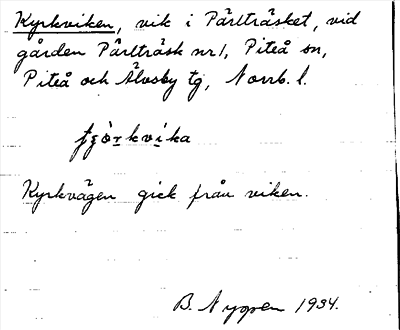 Kyrkviken, vik i Pärlträsket, vid
gården Pärlträsk nr 1, Piteå sn,
Piteå och Älvsby tg, Norrb. l.
Kyrkvägen gick från viken.
B. Nygren 1934.